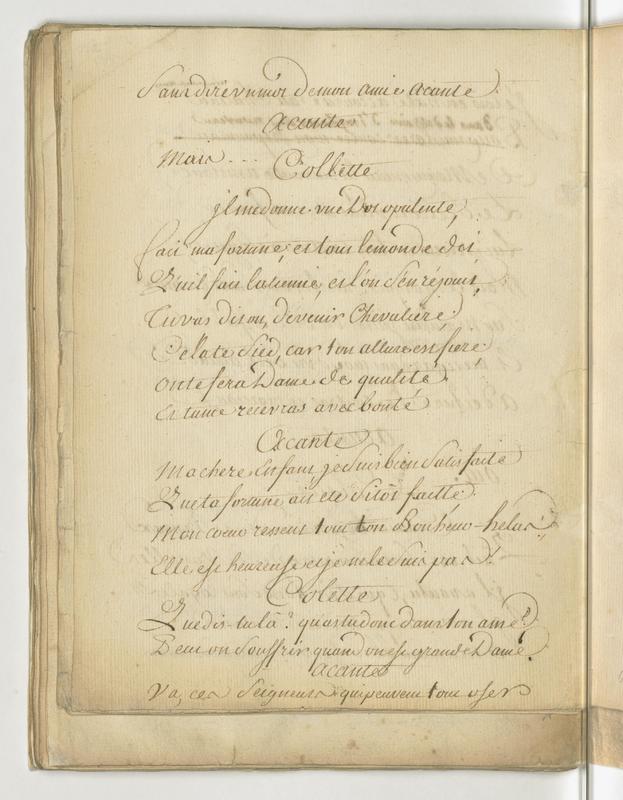 Sans dire un mot de mon amie acante.
acante
Mais ... Collette
jl me donne une Dot opulente,
fait ma fortune; et tous le monde dit
Qu'il fait la tienne, et l'on s'en réjouit,
Tu vas dit on, devenir Chevaliere;
Cela te sied, car ton allure est fiere
on te fera Dame de qualité
Et tu me recevras avec bonté
Acante
Ma chere Enfant je suis bien Satisfaite
Que ta fortune ait eté Sitôt faitte.
Mon coeur ressent tout ton Bonheur - helas!
Elle est heureuse et je ne le suis pas!
Colette
Que dis-tu là? qu'as tu donc dans ton ame?
Peut on Souffrir quand on est grande Dame?
acante
Va, ces Seigneurs qui peuvent tout oser